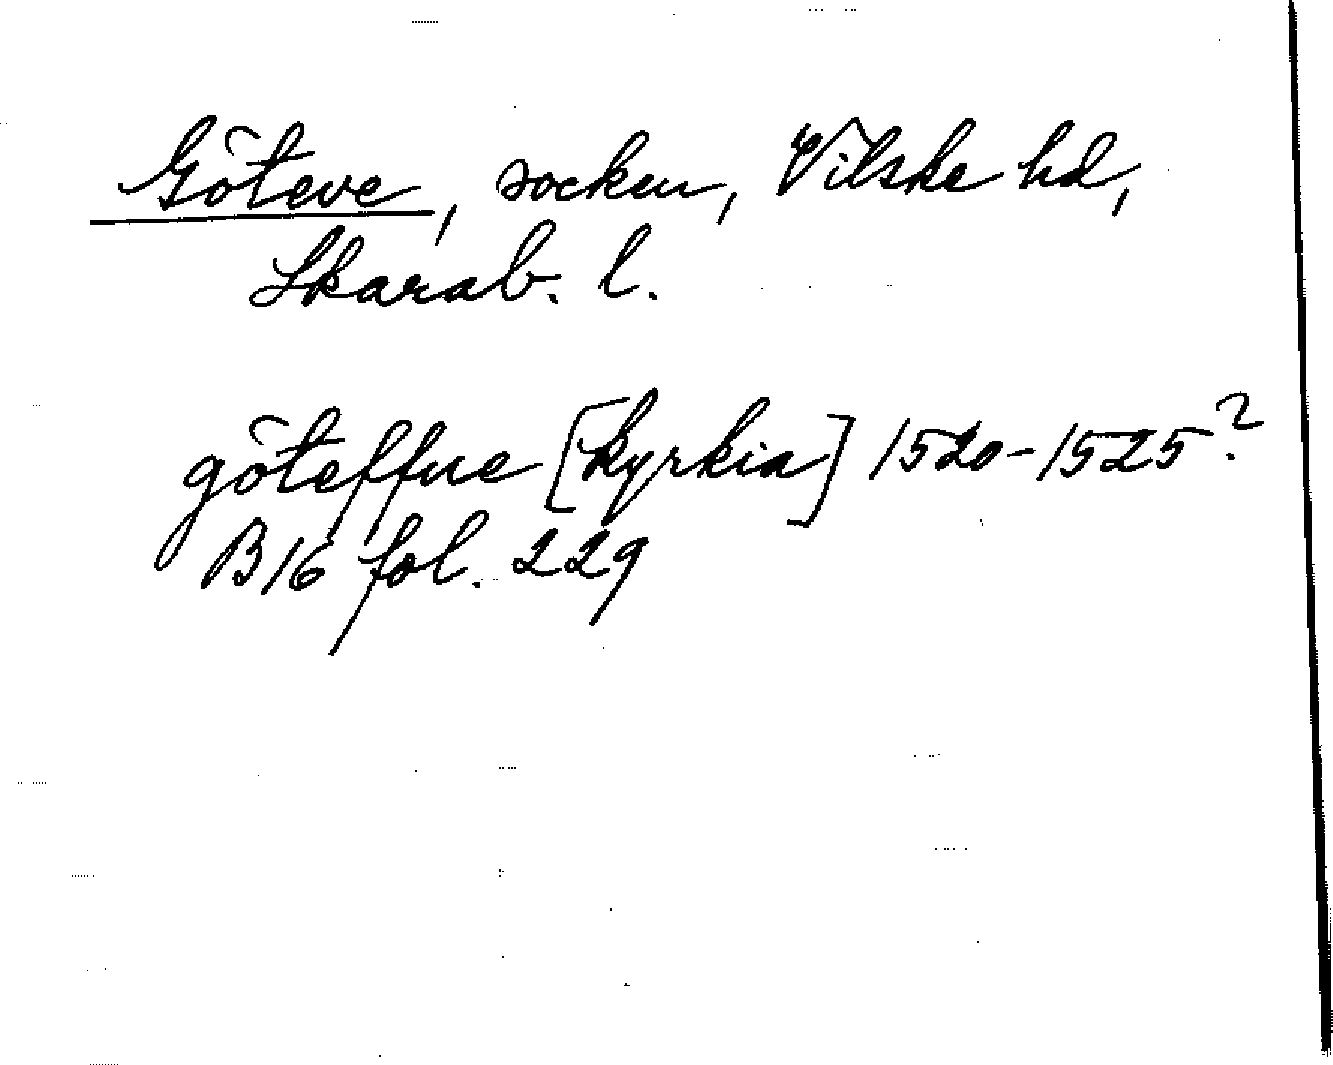 Göteve, socken, Vilske hd,
Skarab. l.
göteffue [kyrkia] 1520-1525?
B16 fol. 229